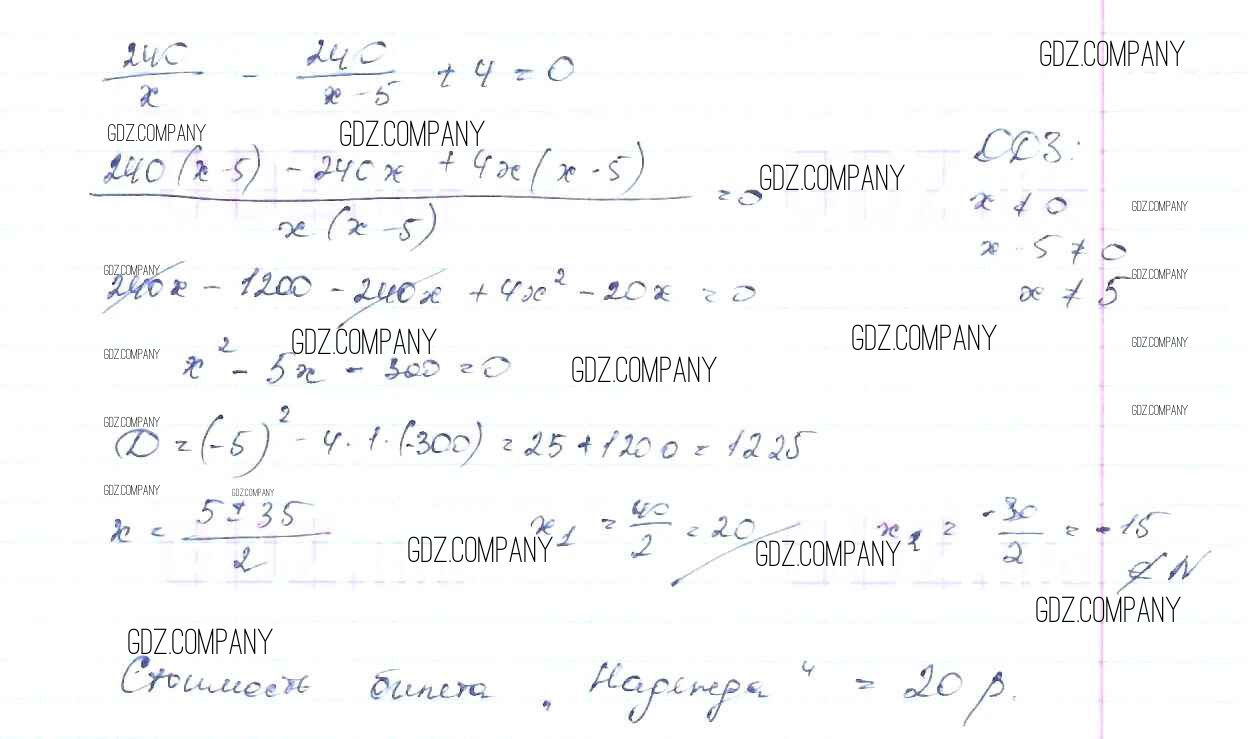 240/x - 240/(x-5) + 4 = 0
GDZ.COMPANY
GDZ.COMPANY GDZ.COMPANY
(240(x-5) - 240x + 4x(x-5))/(x(x-5)) = 0
GDZ.COMPANY
ОДЗ:
x ≠ 0
GDZ.COMPANY
x - 5 ≠ 0
x ≠ 5
GDZ.COMPANY
GDZ.COMPANY
240x - 1200 - 240x + 4x² - 20x = 0
GDZ.COMPANY GDZ.COMPANY GDZ.COMPANY
GDZ.COMPANY GDZ.COMPANY
x² - 5x - 300 = 0
GDZ.COMPANY GDZ.COMPANY
D = (-5)² - 4·1·(-300) = 25 + 1200 = 1225
GDZ.COMPANY GDZ.COMPANY
x = (5 ± 35)/2 x₁ = 40/2 = 20 x₂ = -30/2 = -15 ∉ N
GDZ.COMPANY GDZ.COMPANY
GDZ.COMPANY
GDZ.COMPANY
Стоимость билета „Надежда“ = 20 р.